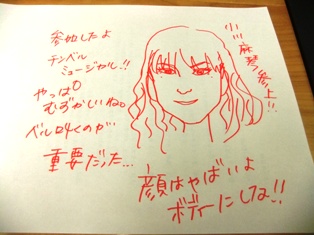 参加したよ
テンベル
ミュージカル!!
やっぱ
むずかしいね。
ベル叩くのが…
重要だった…
小川麻琴参上!!
顔はやばいよ
ボディーにしな!!